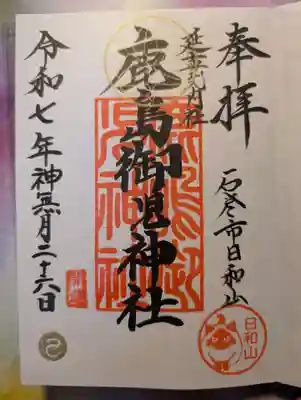 奉拝
石巻市日和山
延喜式内社
鹿島御児神社
鹿島御児神社
令和七年神無月二十六日
日和山